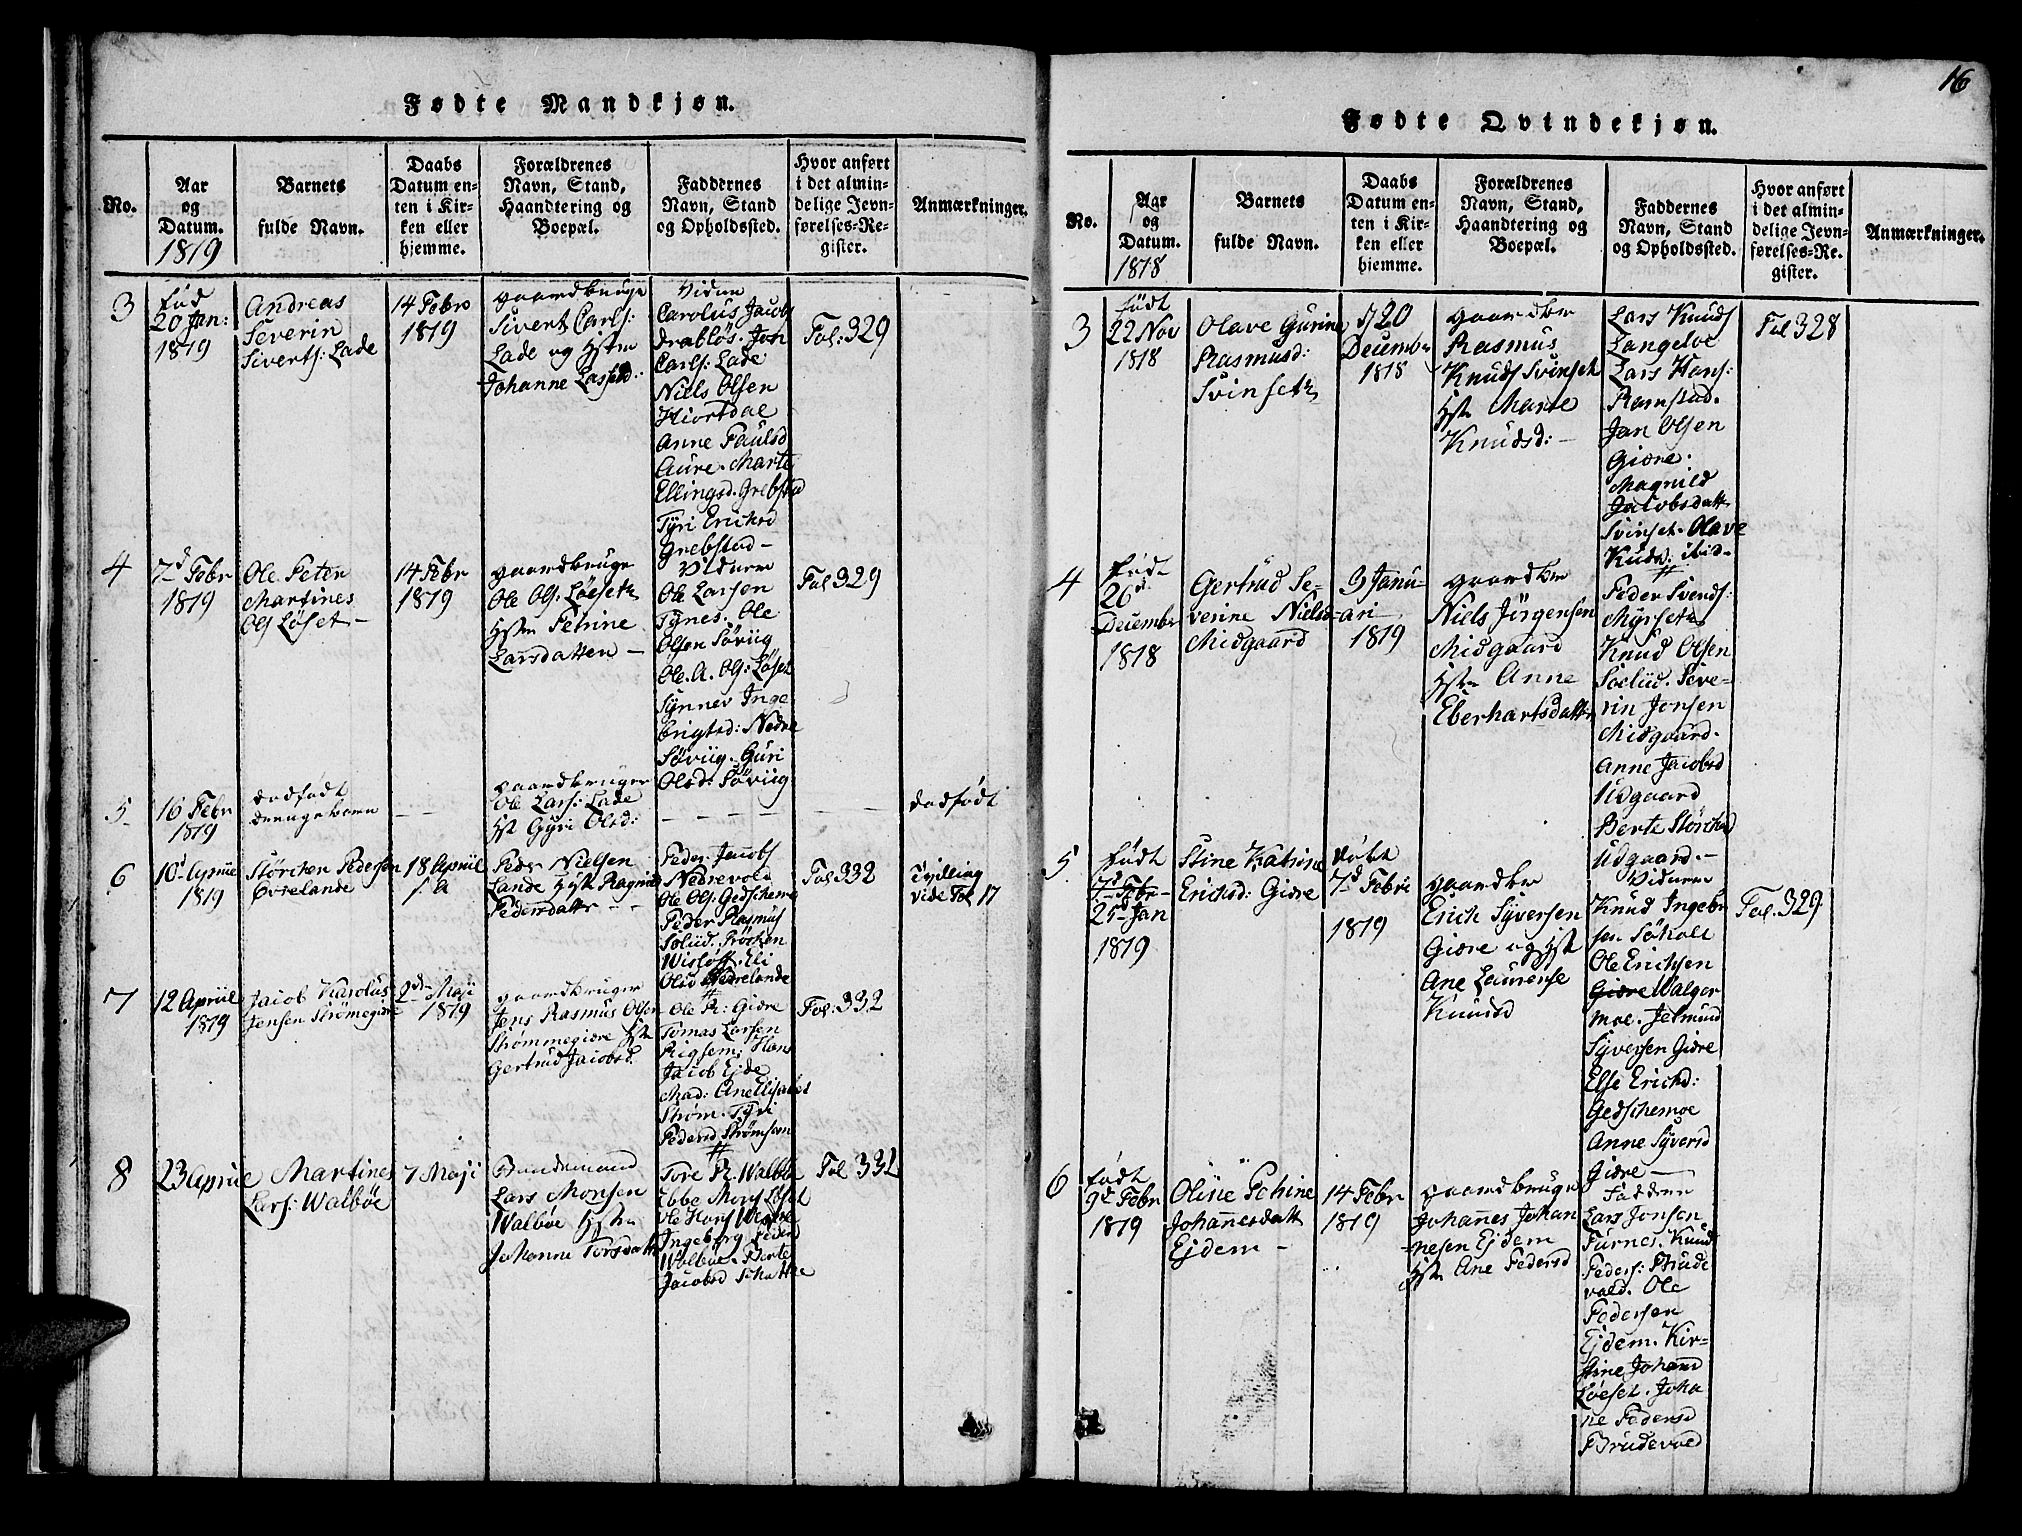 Fødte Mandkjøn.
No.
Aar
og
Datum.
1819
Barnets
fulde Navn.
Daabs
Datum en-
ten i Kir-
ken eller
hjemme.
Forældrenes
Navn, Stand,
Haandtering og
Boepæl.
Faddernes
Navn, Stand
og Opholdssted.
Hvor anført
i det almin-
delige Jevn-
førelses-Re-
gister.
Anmærkninger.
3
född
20 Jan:
1819
Andreas
Severin
Siverts: Lade
14 Febro
1819
gaardbruge
Sivert Carls:
Lade og Hstr
Johanne Lassed:
Vidne
Carolus Jacobs
drabløs. Jon
Carls: Lade
Niels Olsen
Hiortdal
Anne Paulsd
Aure. Marte
Ellingsd. Grebstad
Tyri Ericksd
Grebstad -
Fol: 329
4
7d Febr
1819
Ole Peter
Martines
Ols Løset -
14 Febr
1819
gaardbruge
Ole Ols. Løeset
Hstr Petrine
Larsdatter -
Vidnere
Ole Larsen
Tynes. Ole
Olsen Søviig
Ole. A. Ols: Løset
Synnev Inge
brigtsd: Nedre
Søviig. Guri
Olsd: Søviig
Fol: 329
5
16 Febr
1819
dødfødt
drengebarn
gaardbruger
Ole Lars: Lade
Hst Gyri Olsd:
dødfødt
6
10d Apriil
1819
Størcker Pedersen
Øvrelande
18 Apriil
s. a
Peder Nielsen
Lande Hst Ragnild
Pedersdattr - -
Peder Jacobs
Nedrevold
Ole Ols. Gedschemo
Peder Rasmus
Solüd.
Eli
Olsd Nedrelande
Fol: 332
Tvilling
vide Fol 17
7
12 Apriil
1819
Jacob Karolus
Jensen Strømegiere
2den Maji
1819
gaardbruger
Jens Rasmus Olsen
Strømmegiære Hst
Gertrud Jacobsd.
Ole R: Giære
Tomas Larsen
Rigsem: Hans
Jacob Ejde
Mad: Ane Elisabet
Strøm. Tyri
Pedersd Strømsen
Fol: 332
8
23 Apriil
Martines
Lars: Walbøe
7 Maji
Bondemand
Lars Monsen
Walbøe Hstr
Johanne Torsdattr
Tore R. Walbøe
Ebbe Mons Løset
Ole Hans
Ingeborg Peder
Walbøe. Berte
Jacobsd
Fol 332
16
Fødte Qvindekjøn.
No.
Aar
og
Datum.
1818
Barnets
fulde Navn.
Daabs
Datum en-
ten i Kir-
ken eller
hjemme.
Forældrenes
Navn, Stand,
Haandtering og
Boepæl.
Faddernes
Navn, Stand
og Opholdssted.
Hvor anført
i det almin-
delige Jevn-
førelses-Re-
gister.
Anmærkninger.
3
født
22 Nov
1818
Olave Gurine
Rasmusd:
Svinset
20
Decembr
1818
gaardbr
Rasmus
Knuds Svinset
Hstr Marte
Knudsd: -
Lars Knuds
Langeloe
Lars Hans:
Ramstad.
Jan Olsen
Giære.
Magnild
Jacobsdattr
Svinset. Olave
Knuds: ibid.
Fol 328
4
født
26d
Decembr
1818
Gertrud Se-
verine Nielsd
Midgaard
3 Janu-
ari
1819
gaardbr
Niels Jörgensen
Midgaard
Hstr Anne
Eberhartsdattr
Peder Svends:
Myrset
Knud Olsen
Soelüd. Seve-
rin Jonsen
Midgaard.
Anne Jacobsd
Udgaard
Berte Størckd
Udgaard. -
5
født
7d Febr -
25d Jan
1819
Stine Katrine
Ericksd: Giære
døbt
7d Febri
1819
gaardbr
Erich Syversen
Giære og Hst
Ane Laurense
Knudsd
Vidnere
Knud Ingebr
sen Søholt
Ole Erichsen
Giære Walger
moe. Jetmund
Syversen Giære
Else Erichd:
Gedschemoe
Anne Syversd
Giære -
Fol. 329
6
født
9d Febr
1819
Oline Pehine
Johannesdattr
Ejdem -
14 Febr
1819
gaardbruge
Johannes Johan
nesen Ejdem
Hstr Ane Pedersd
Faddere
Lars Jonsen
Furnes. Knud
Peders: Brude
vold. Ole
Pedersen
Ejdem. Kir-
stine Johansd
Løeset. Joha
ne Pedersd
Brudevold